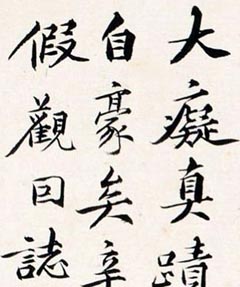 大癡真蹟
自豪矣辛
假觀回誌